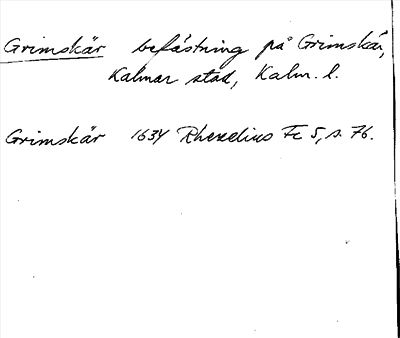 Grimskär befästning på Grimskär,
Kalmar stad, Kalm. l.
Grimskär 1634 Rhezelius Fc 5, s. 76.